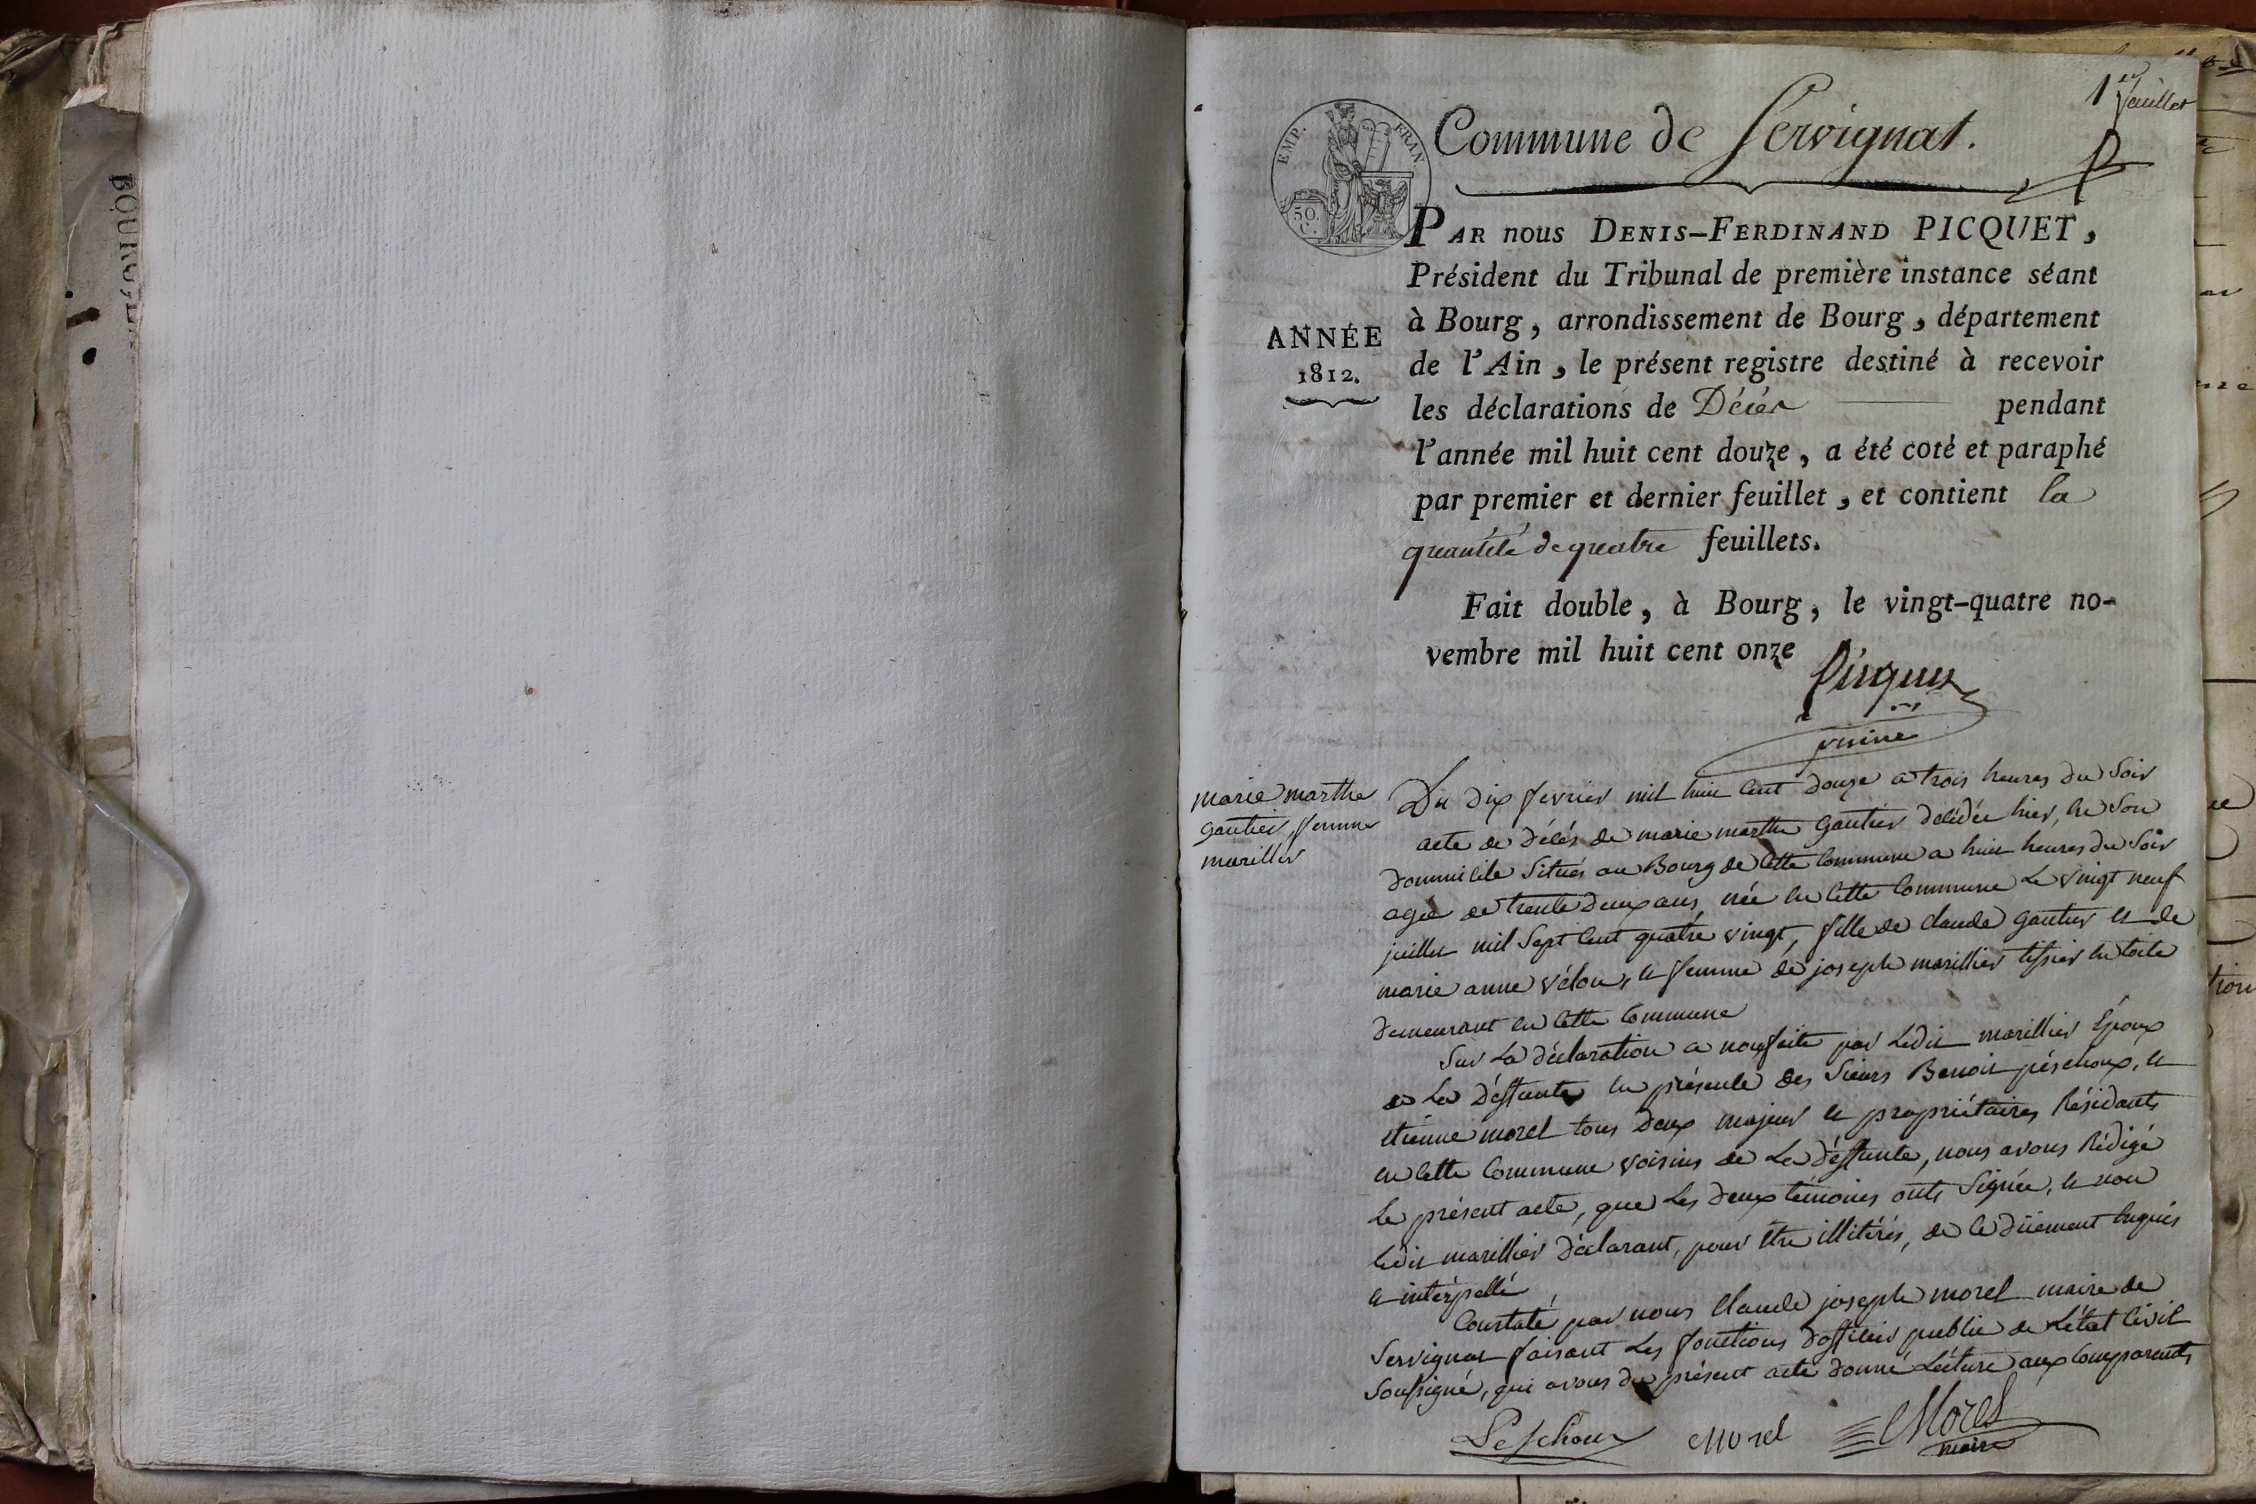 1er feuillet
Commune de Servignat.
EMP. FRAN
50.
C.
PAR nous DENIS-FERDINAND PICQUET,
Président du Tribunal de première instance séant
à Bourg, arrondissement de Bourg, département
ANNÉE
1812.
de l'Ain, le présent registre destiné à recevoir
les déclarations de Décés pendant
l'année mil huit cent douze, a été coté et paraphé
par premier et dernier feuillet, et contient la
quantité de quatre feuillets.
Fait double, à Bourg, le vingt-quatre no-
vembre mil huit cent onze
Picquet
marie marthe
gautier, femme
marillier
Du dix fevrier mil huit cent douze a trois heures du Soir
acte de décés de marie marthe Gautier décédée hier, en Son
domicile Situés au Bourg de Cette Commune a huit heures du Soir
agée de trente deux ans, née en Cette Commune Le vingt neuf
juillet mil Sept Cent quatre vingt, fille de claude gautier et de
marie anne vélon, et femme de joseph marillier tissier en toile
demeurant en Cette Commune
Sur La déclaration a nous faite par Ledit marillier Epoux
de La deffunte en présence des Sieurs Benoit péschoux, et
etienne morel tous deux majeur et propriétaires Résidants
en Cette Commune voisins de La déffunte, nous avons Rédigé
Le présent acte, que Les deux témoins onts Signée, et non
Ledit marillier déclarant, pour être illitérés, de Ce düement Enquis
et intérpellé
Constaté par nous Claude joseph morel maire de
Servignat faisant Les fonctions d'officier public de L'état Civil
Soussigné, qui avons du présent acte donné Lécture aux Comparants
Peschoux Morel Morel
maire